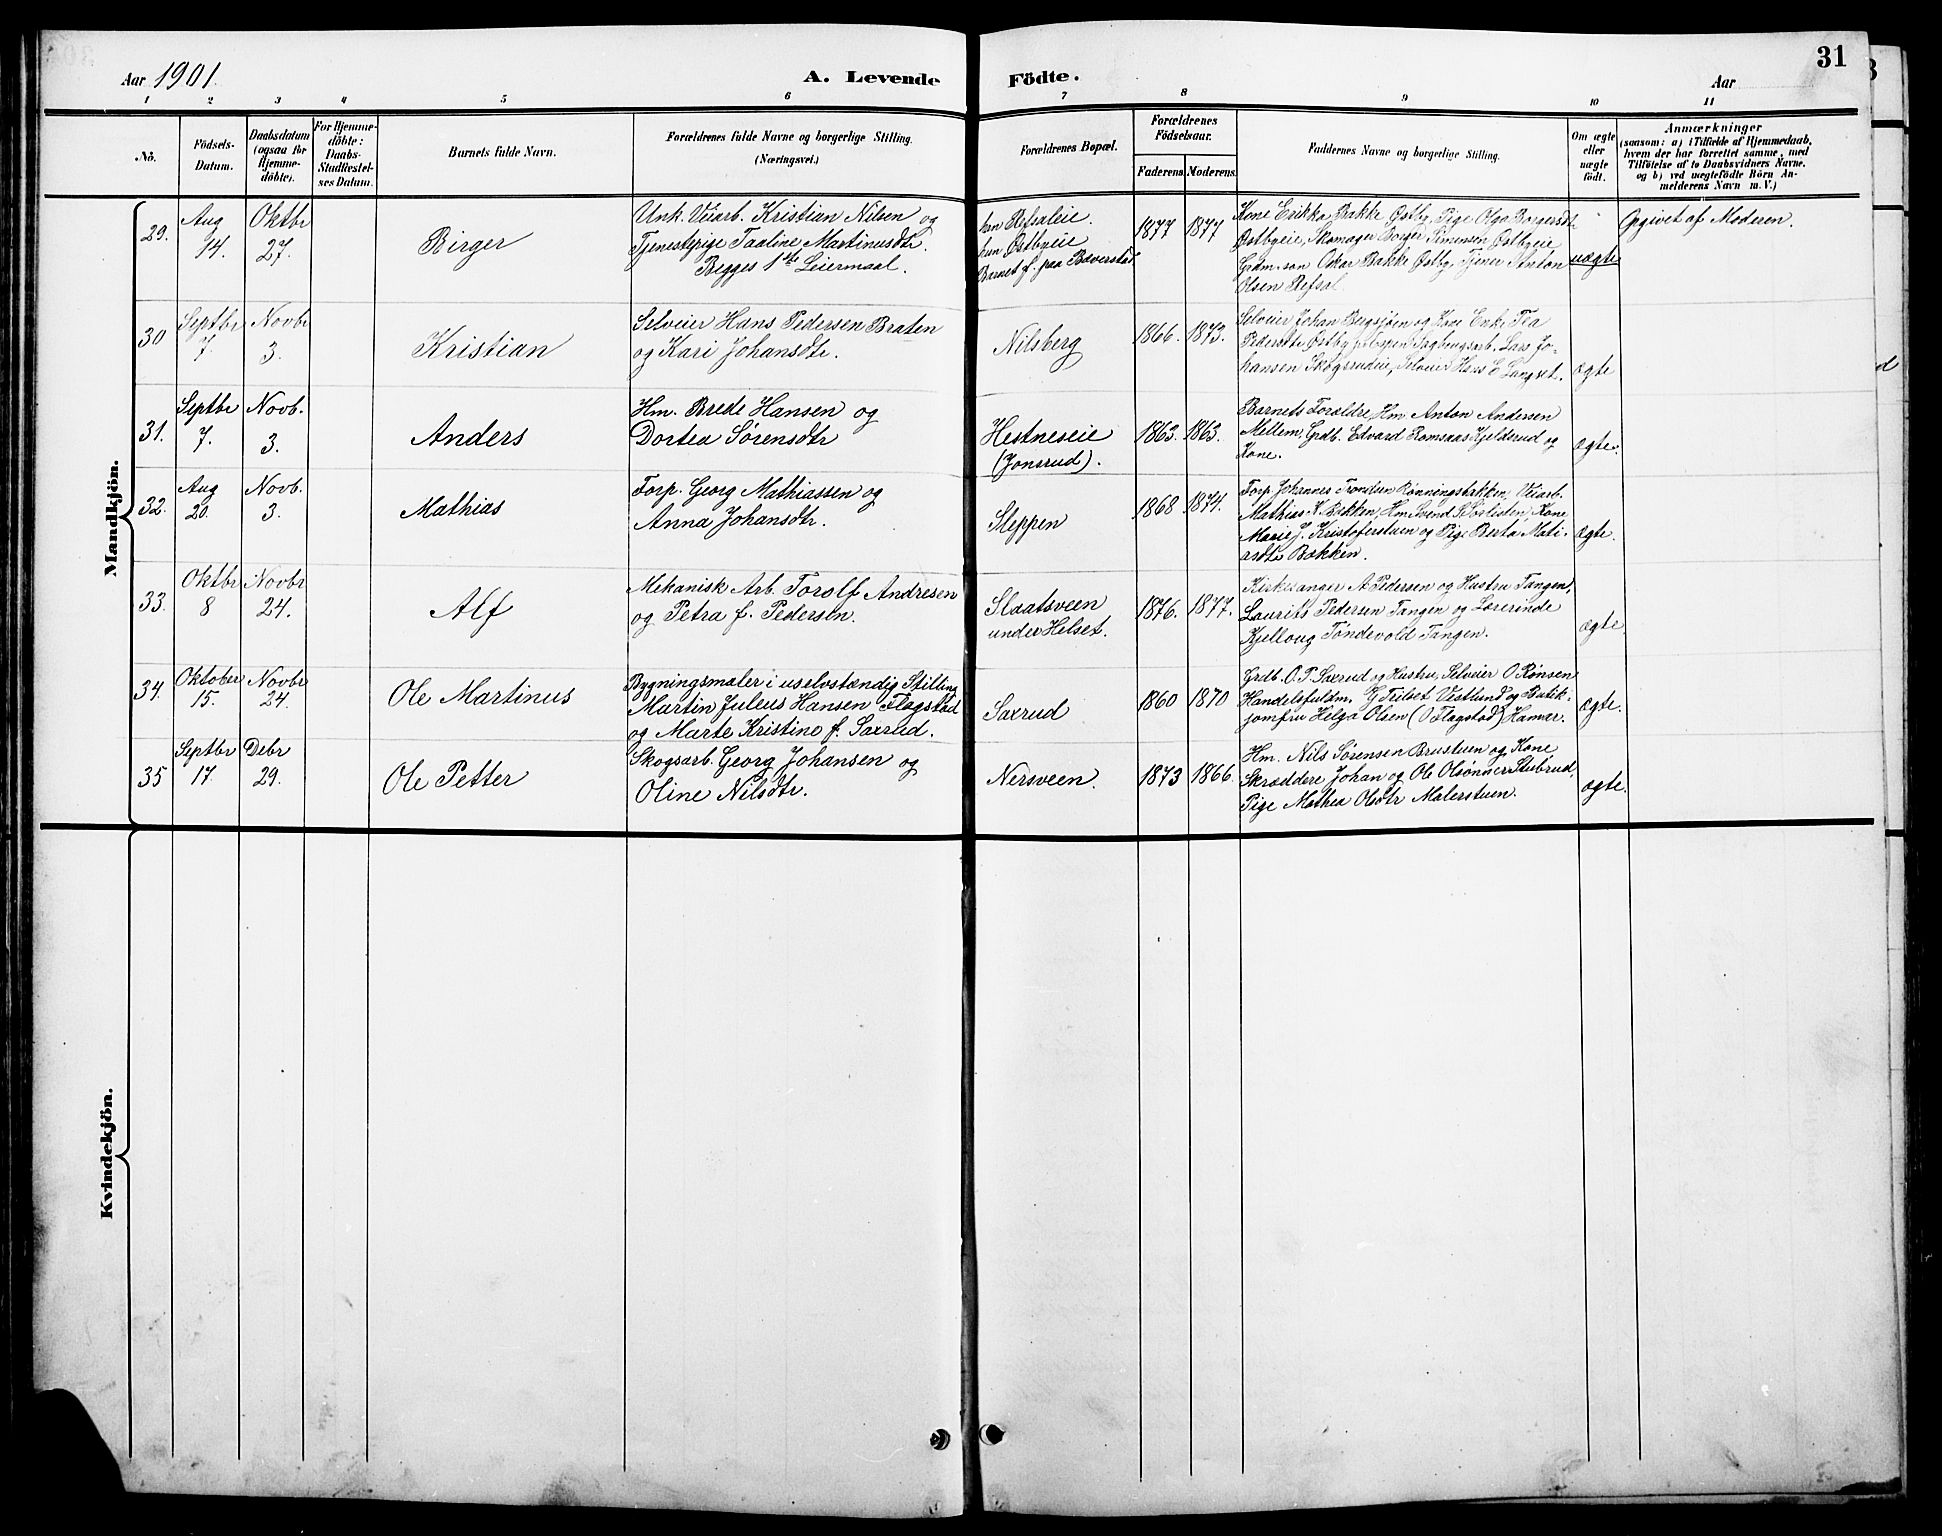 Aar 1901.
A. Levende Födte.
Aar
31
1 2 3 4 5 6 7 8 9 10 11
No.
Födsels-
Datum.
Daabsdatum
(ogsaa for
Hjemme-
döbte).
For Hjemme-
döbte:
Daabs-
Stadfæstel-
ses Datum.
Barnets fulde Navn.
Forældrenes fulde Navne og borgerlige Stilling.
(Næringsvei.)
Forældrenes Bopæl.
Forældrenes
Födselsaar.
Faderens. Moderens.
Faddernes Navne og borgerlige Stilling.
Om ægte
eller
uægte
födt.
Anmærkninger
(saasom: a) i Tilfælde af Hjemmedaab,
hvem der har forrettet samme, med
Tilföielse af to Daabsvidners Navne.
og b) ved uægtefödte Börn An-
melderens Navn m. V.)
Mandkjön.
29.
Aug
14.
Oktbr
27.
Birger
Unk. Veiarb. Kristian Nilsen og
Tjenestepige Taaline Martinusdtr.
Begges 1ste Leiermaal.
han Refsaleie.
hun Østbyeie
Barnet f. paa Bæverstad
1877
1877
Kone Erikka Bakke Østby, Pige Olga Borgersdtr
Østbyeie, Skomager Borger Simensen Østbyeie
Grdm.søn Oskar Bakke Østby, Tjener Anton
Olsen Refsal.
uægte
Opgivet af Moderen.
30
Septbr
7.
Novbr
3.
Kristian
Selveier Hans Pedersen Braten
og Kari Johansdtr.
Nilsberg
1866.
1873.
Selveier Johan Bergsjøen og Kone Enke Tea
Pedersdtr Østby Dagbrugsarb. Lars Jo-
hansen Skogsrudeie, Selveier Hans E Langset.
ægte
31.
Septbr
7.
Novb.
3.
Anders
Hm. Brede Hansen og
Dortea Sørensdtr
Hestneseie
(Jonsrud).
1863.
1863.
Barnets Forældre, Hm Anton Andersen
Mellem, Grdb. Edvard Romsaas Kjeldsrud og
Kone.
ægte.
32.
Aug
20.
Novb.
3.
Mathias
Forp. Georg Mathiassen og
Anna Johansdtr.
Steppen
1868
1874.
Forp. Johannes Trondsen Rønningsbakken, Veiarb.
Mathias K. Bakken, Hm. Svend P. Sørlisten Kone
Marie J. Kristoferstuen og Pige Berta Mati-
asdtr Bakken.
ægte.
33.
Oktbr
8
Novbr
24.
Alf
Mekanisk Arb. Torolf Andresen
og Petra f. Pedersen.
Slaatsveen
under Helset.
1876.
1877.
Kirkesanger A. Pedersen og Hustru Tangen,
Laurits Pedersen Tangen og Lærerinde
Kjellaug Tøndevold Tangen.
ægte.
34.
Oktober
15.
Novbr
24.
Ole Martinus
Bygningsmaler i uselvstændig Stilling
Martin Juleus Hansen Flagstad
og Marte Kristine f. Saxrud.
Saxrud
1860
1870
Grdb. O. P. Saxrud og Hustru, Selveier O. Rønsen
Handelsfuldm. G Trilset Vestlund og Butik-
jomfru Helga Olsen (O Flagstad) Hamar.
ægte.
35
Septbr
17.
Debr
29.
Ole Petter
Skogsarb. Georg Johansen og
Oline Nilsdtr.
Nersveen.
1873
1866.
Hm. Nils Sørensen Brustuen og Kone
Skræddere Johan og Ole Olsønner Stubrud,
Pige Mathea Olsdtr Malerstuen.
ægte.
Kvindekjön.